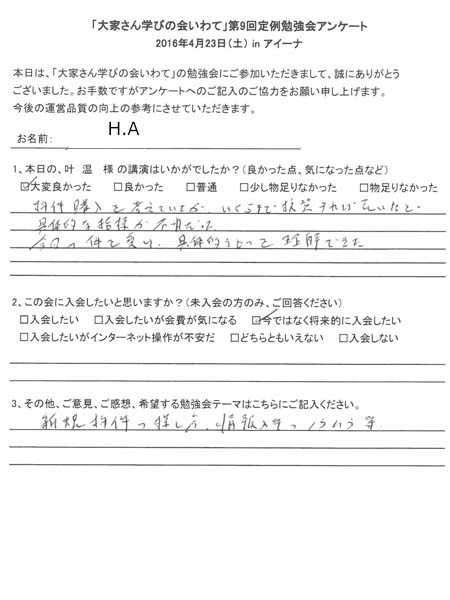 「大家さん学びの会いわて」第9回定例勉強会アンケート
2016年4月23日(土) in アイーナ
本日は、「大家さん学びの会いわて」の勉強会にご参加いただきまして、誠にありがとう
ございました。お手数ですがアンケートへのご記入のご協力をお願い申し上げます。
今後の運営品質の向上の参考にさせていただきます。
お名前: H.A
1、本日の、叶 温 様 の講演はいかがでしたか?(良かった点、気になった点など)
☑大変良かった □良かった □普通 □少し物足りなかった □物足りなかった
物件購入を考えているが、いくらまで投資すれば良いかと
具体的な指標が不明だった
今日の件を受け、具体的になって理解できた
2、この会に入会したいと思いますか?(未入会の方のみ、ご回答ください)
□入会したい □入会したいが会費が気になる ☑今ではなく将来的に入会したい
□入会したいがインターネット操作が不安だ □どちらともいえない □入会しない
3、その他、ご意見、ご感想、希望する勉強会テーマはこちらにご記入ください。
新規物件の探し方、情報入手のノウハウ等